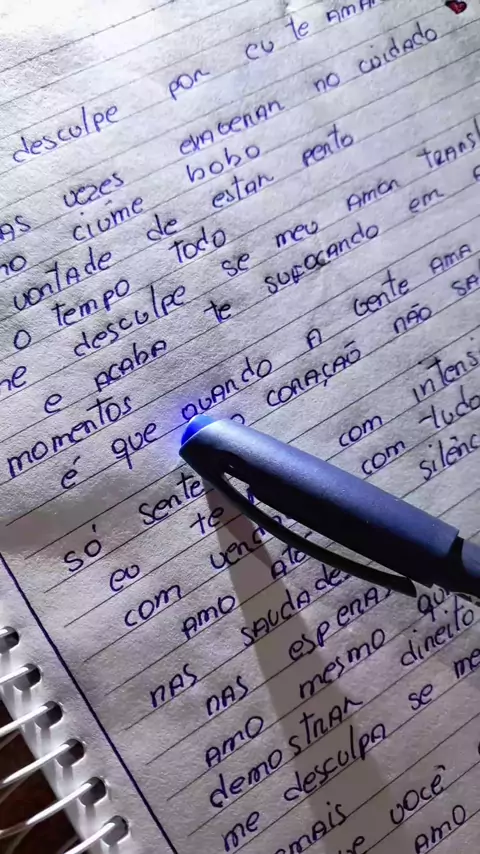 desculpe por eu te AMA
AS vezes exagerar no cuidado
no ciúme bobo
vontade de estar perto
o tempo todo
me desculpe se meu AMOR trans
e ACABA te sufocando em
momentos
é que quando A gente AMA
o CORAÇÃO não SA
só sente
eu te com intens
com com tudo
AMO Até silênc
nas SAUDADES
nas esperas
AMO mesmo qu
demostrar direito
me desculpa se me
mais você
AMO